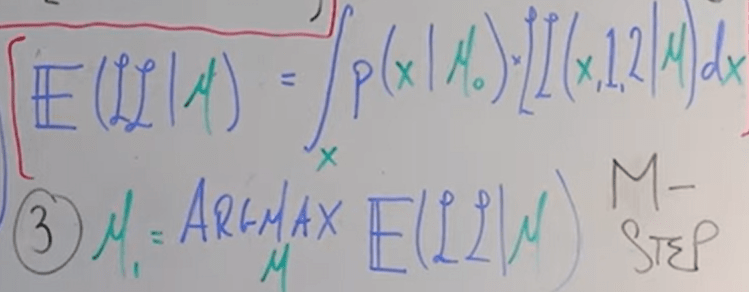 𝔼(LL|μ) = ∫ₓ p(x|μ₀)·LL(x,1,2|μ)dx
③ μ₁ = ARGMAX_μ 𝔼(LL|μ) M-STEP